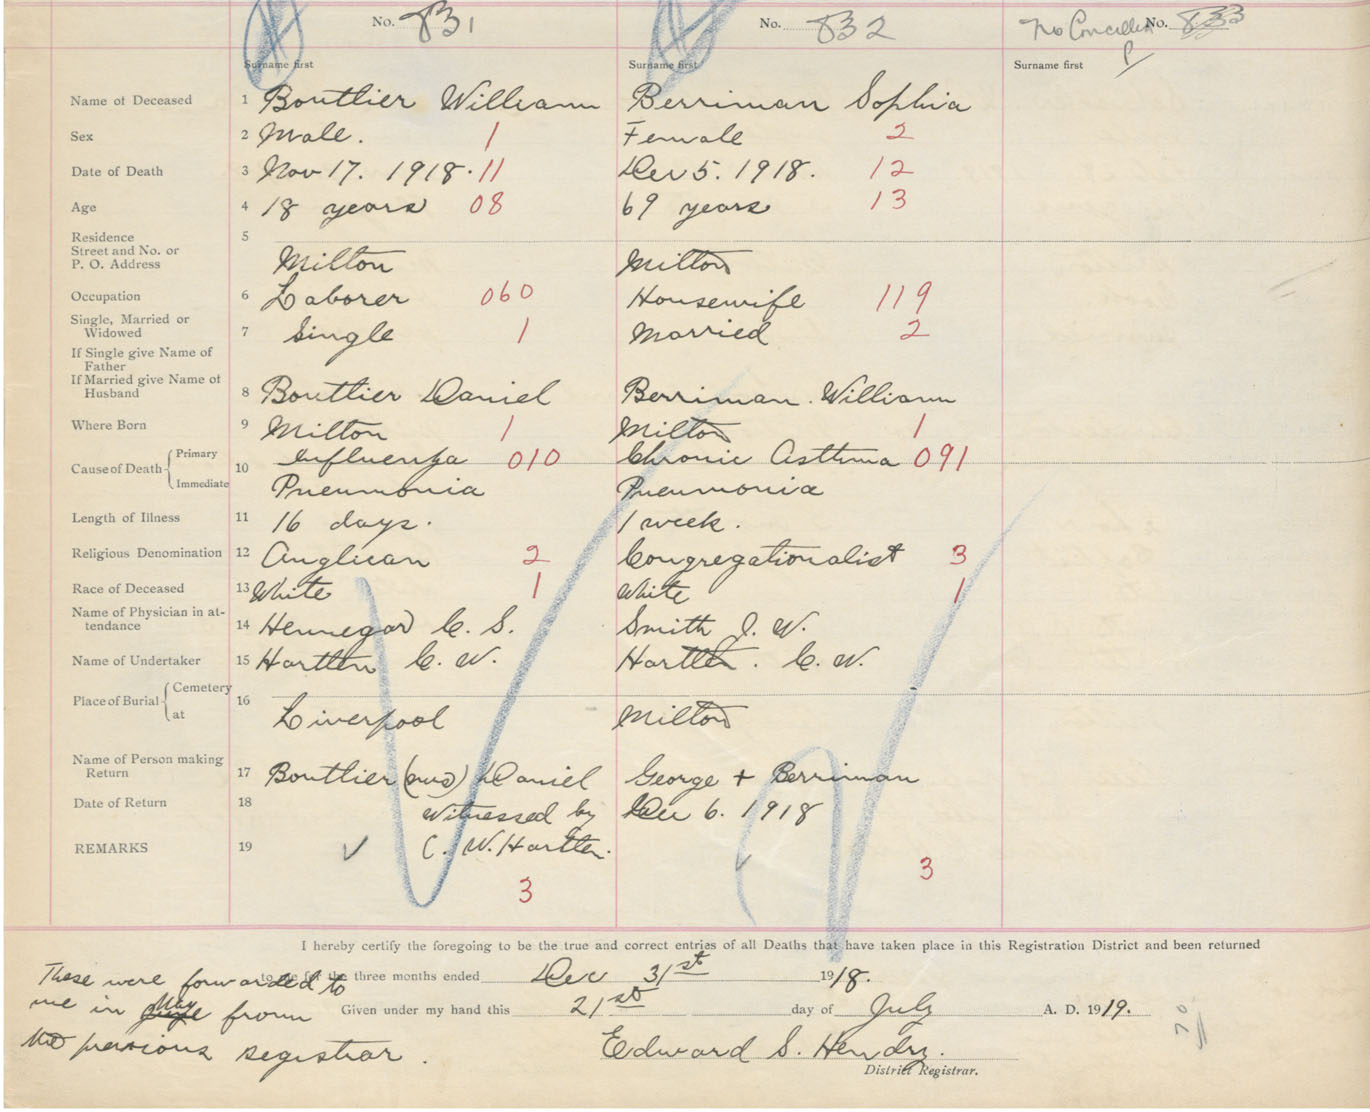 No. 831
No. 832
No. 833
Surname first
Surname first
Surname first
Name of Deceased 1 Boutlier William Berriman Sophia
Sex 2 Male. 1 Female 2
Date of Death 3 Nov 17. 1918. 11 Dec 5. 1918. 12
Age 4 18 years 08 69 years 13
Residence 5
Street and No. or
P. O. Address Milton Milton
Occupation 6 Laborer 060 Housewife 119
Single, Married or
Widowed 7 Single 1 Married 2
If Single give Name of
Father
If Married give Name of
Husband 8 Boutlier Daniel Berriman. William
Where Born 9 Milton 1 Milton 1
Cause of Death Primary 10 Influenza 010 Chronic Asthma 091
Immediate Pneumonia Pneumonia
Length of Illness 11 16 days. 1 week.
Religious Denomination 12 Anglican 2 Congregationalist 3
Race of Deceased 13 White 1 White 1
Name of Physician in at-
tendance 14 Hennegar C. S. Smith J. W.
Name of Undertaker 15 Hartlen C. W. Hartlen. C. W.
Place of Burial Cemetery 16
at Liverpool Milton
Name of Person making
Return 17 Boutlier (mrs) Daniel George + Berriman
Date of Return 18 Witnessed by Dec 6. 1918
REMARKS 19 C. W. Hartlen.
3 3
I hereby certify the foregoing to be the true and correct entries of all Deaths that have taken place in this Registration District and been returned
to me for the three months ended Dec 31st 1918.
Given under my hand this 21st day of July A. D. 1919.
Edward S. Hendry.
District Registrar.
These were forwarded to
me in May from
the previous registrar.